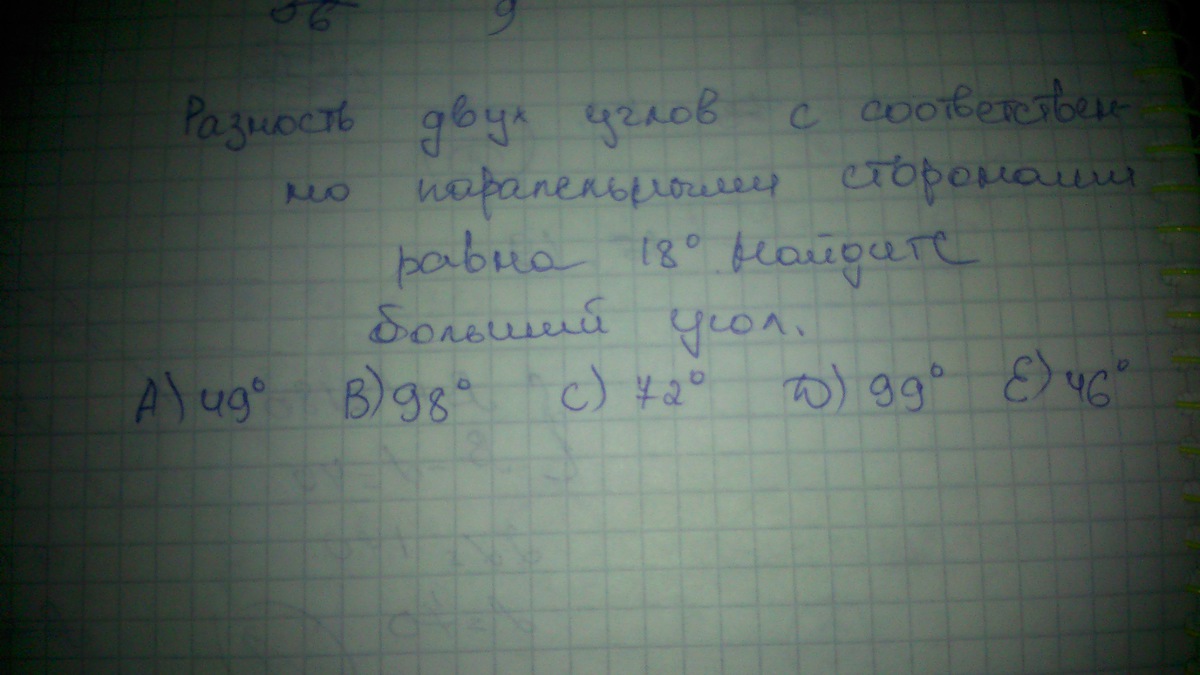 Разность двух углов с соответствен-
но паралельными сторонами
равна 18° Найдите
больший угол.
А) 49° В) 98° С) 72° Д) 99° Е) 46°